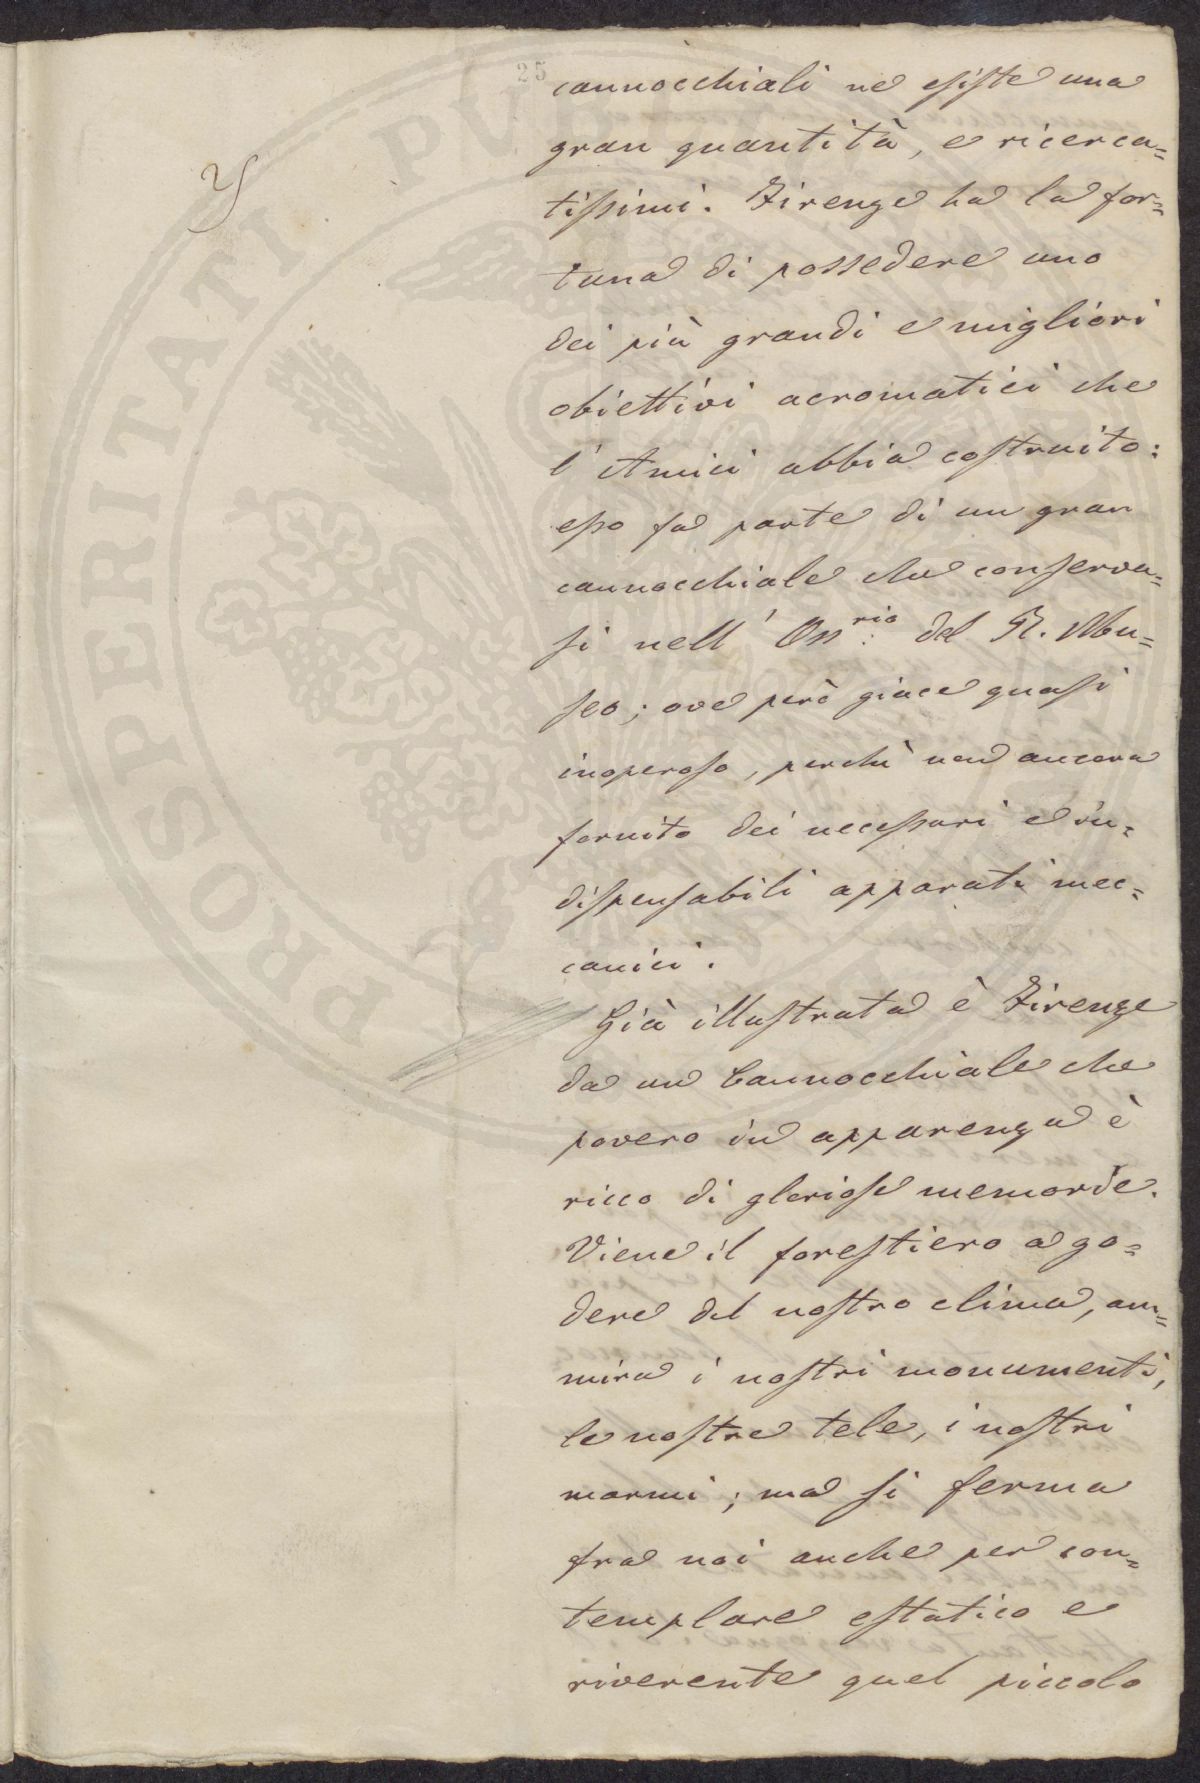 25
cannocchiali ne esiste una
gran quantità, e ricerca=
tissimi. Firenze ha la for=
tuna di possedere uno
dei più grandi e migliori
obiettivi acromatici che
l'Amici abbia costruito:
esso fa parte di un gran
cannocchiale che conserva=
si nell'Oss.rio del R. Mu=
seo; ove però giace quasi
inoperoso, perchè non ancora
fornito dei necessari ed in=
dispensabili apparati mec=
canici.
Già illustrata è Firenze
da un Cannocchiale che
povero in apparenza è
ricco di gloriose memorie.
Viene il forestiero a go=
dere del nostro clima, am=
mira i nostri monumenti,
le nostre tele, i nostri
marmi; ma si ferma
fra noi anche per con=
templare estatico e
riverente quel piccolo
PVBLICAE PROSPERITATI